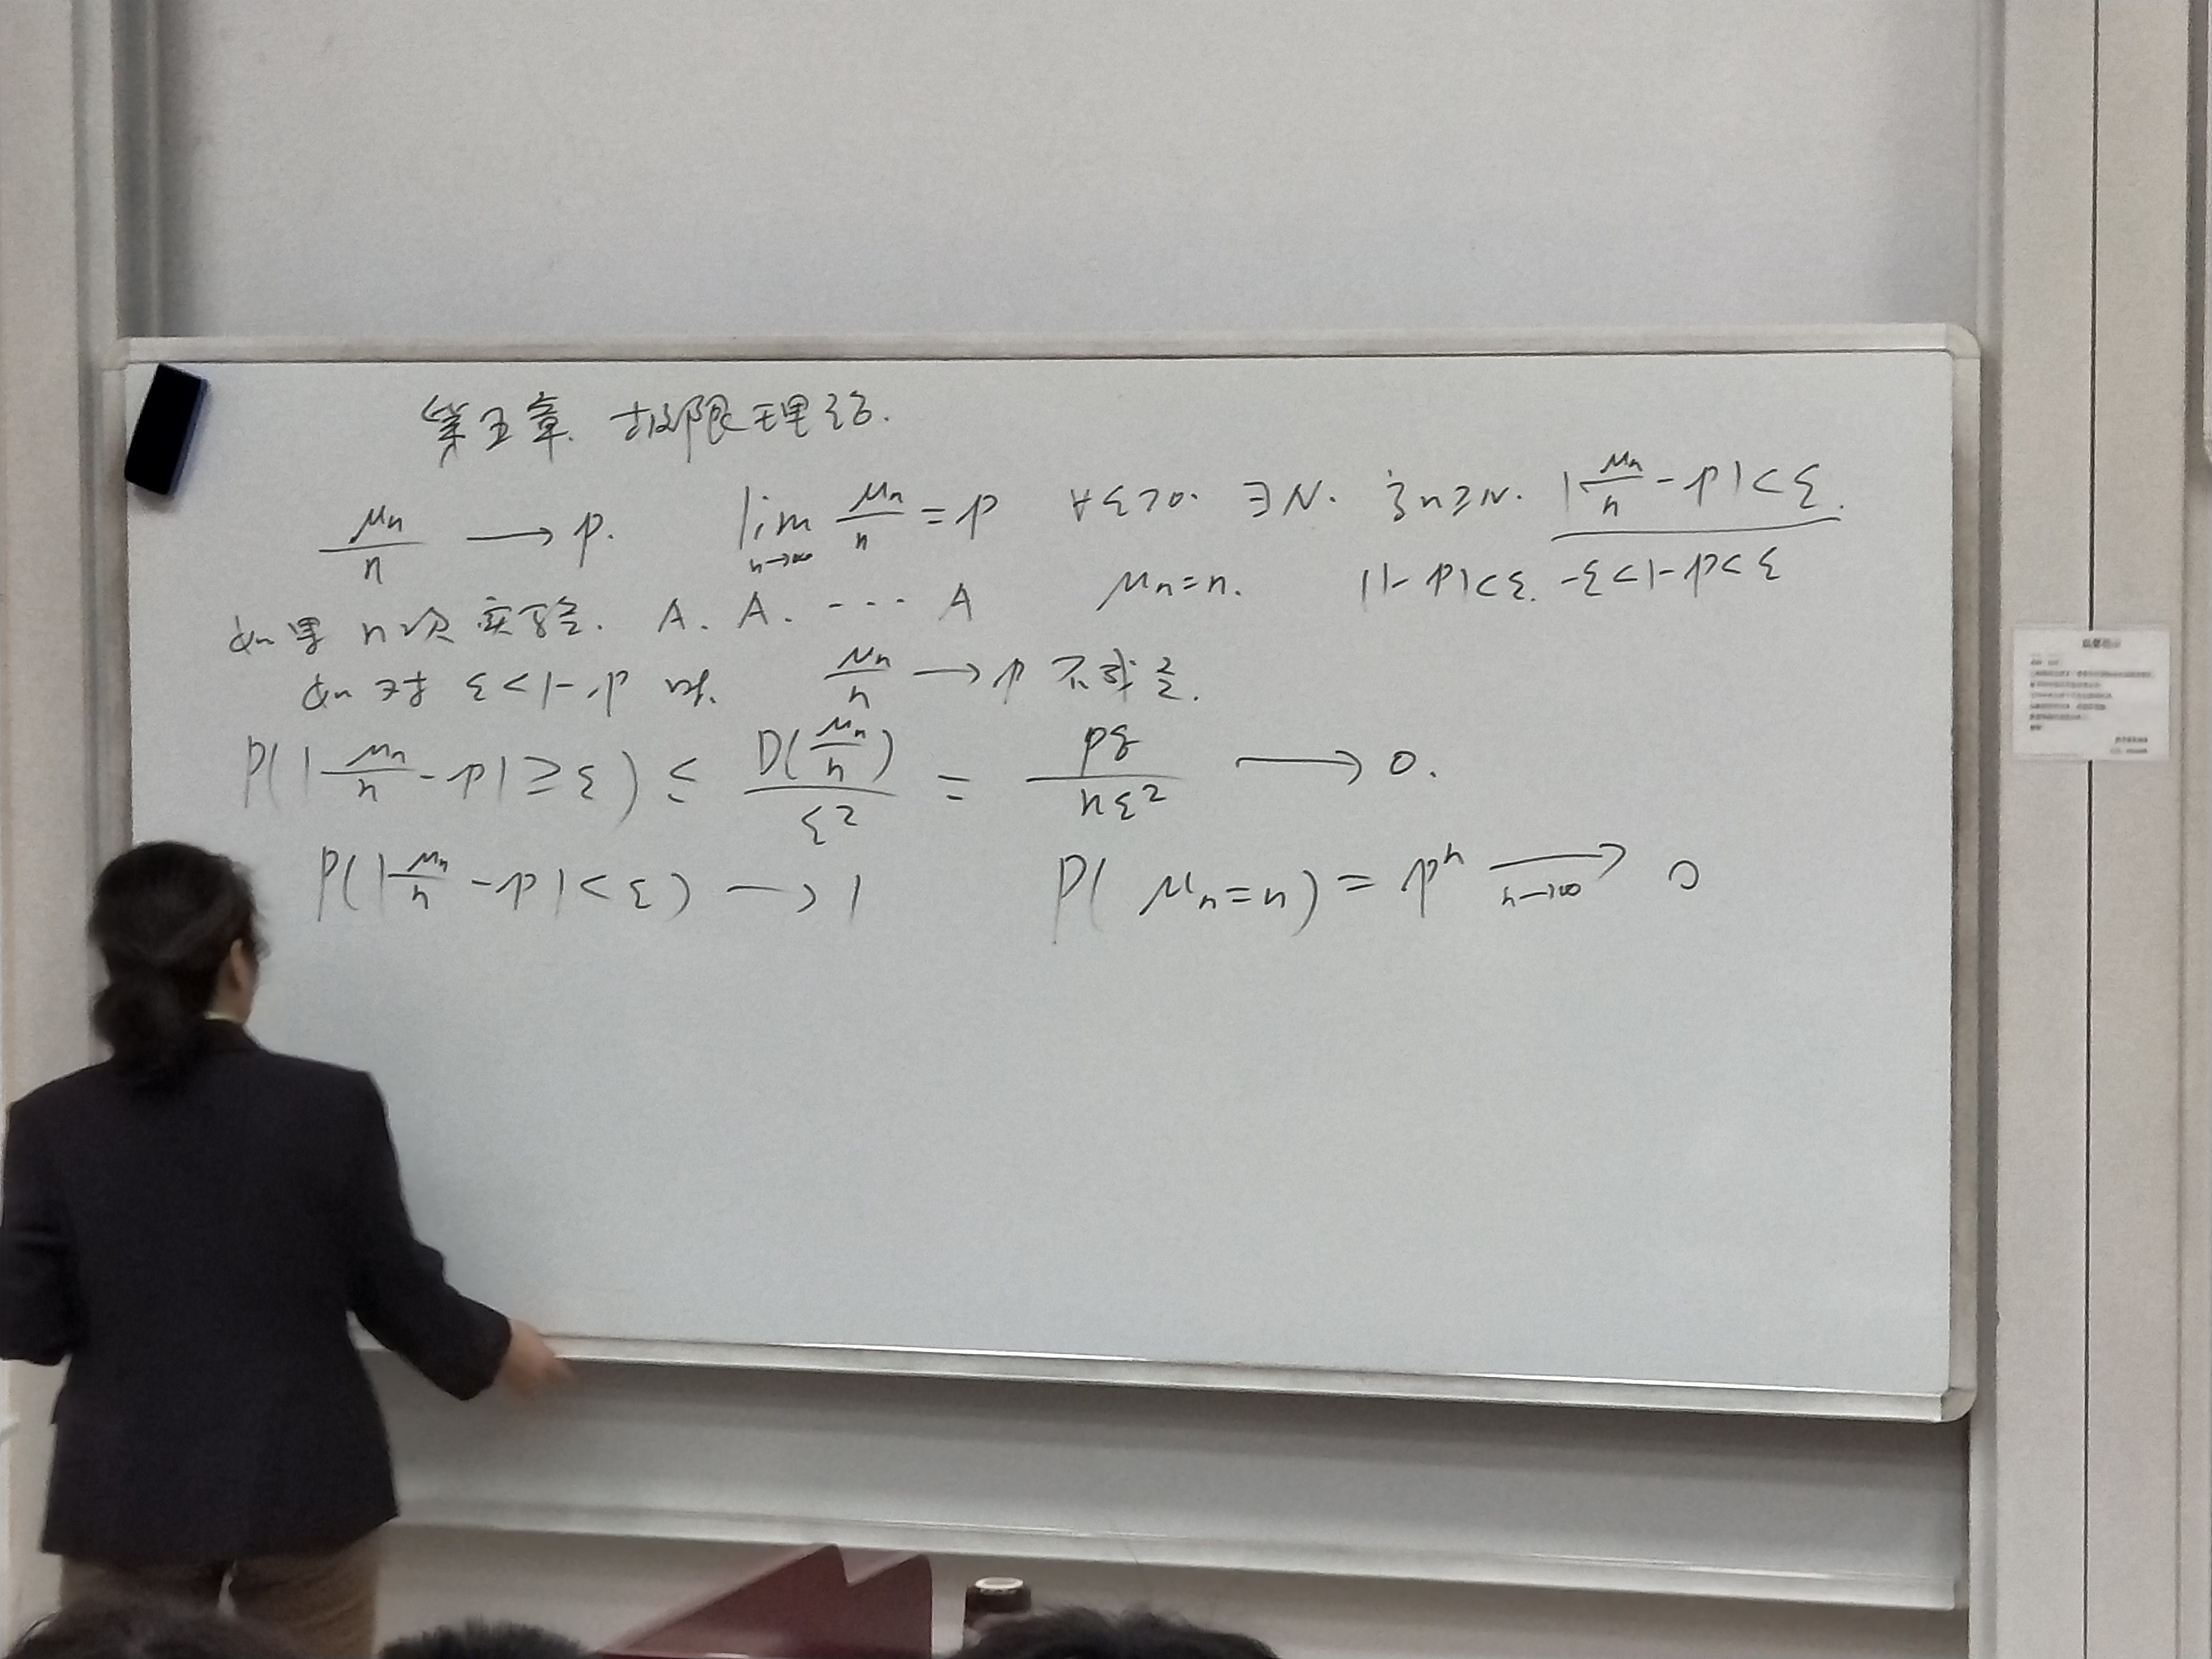 第五章. 极限理论.
μn/n → p. lim n→∞ μn/n = p ∀ε>0. ∃N. 当n≥N. |μn/n - p|<ε.
如果 n次 实验. A. A. ··· A μn=n. |1-p|<ε. -ε<1-p<ε
如 对 ε<1-p 时. μn/n → p 不成立.
P(|μn/n - p|≥ε) ≤ D(μn/n)/ε² = pq/nε² → 0.
P(|μn/n - p|<ε) → 1 P(μn=n) = pⁿ → n→∞ 0